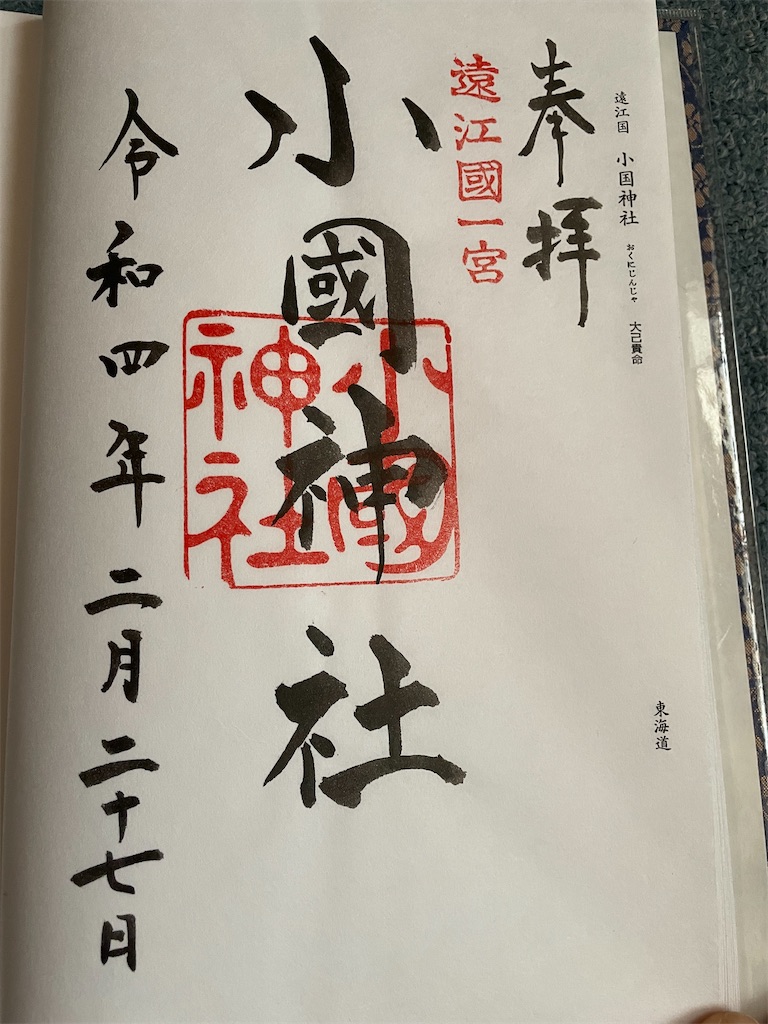 遠江国 小国神社 おくにじんじゃ 大己貴命
東海道
奉拝
遠江國一宮
小國神社
小國神社
令和四年二月二十七日